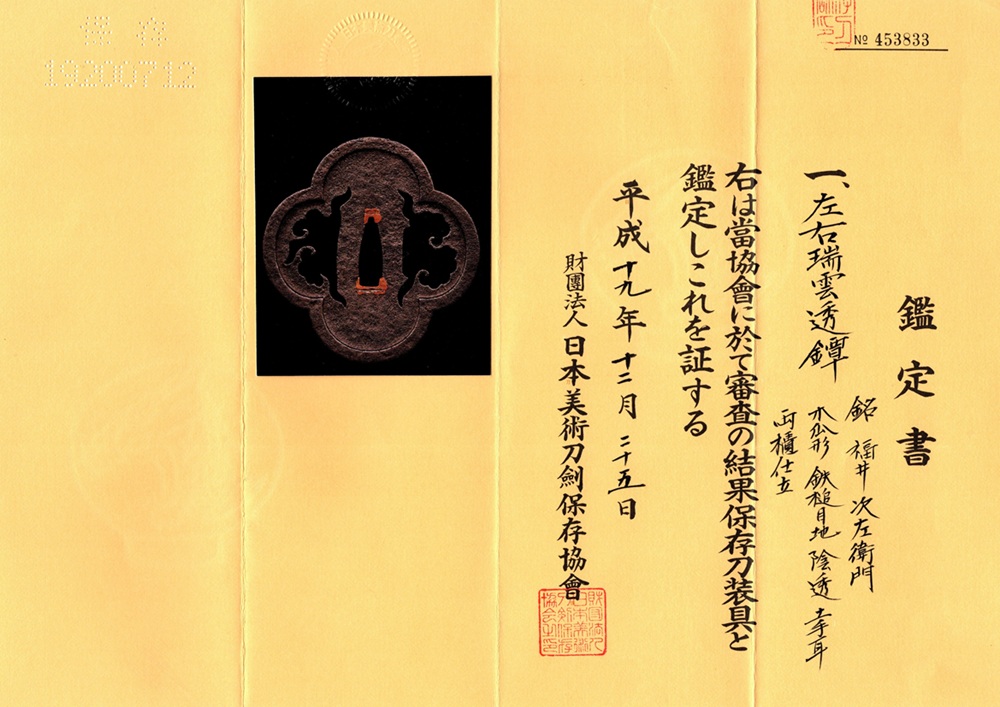 鑑定書
一、左右瑞雲透鐔
銘 福井次左衛門
木瓜形 鉄槌目地 陰透
両櫃仕立
右は當協會に於て審査の結果保存刀装具と
鑑定しこれを証する
平成十九年十二月二十五日
財團法人日本美術刀劍保存協會
№ 453833
保存
19200712